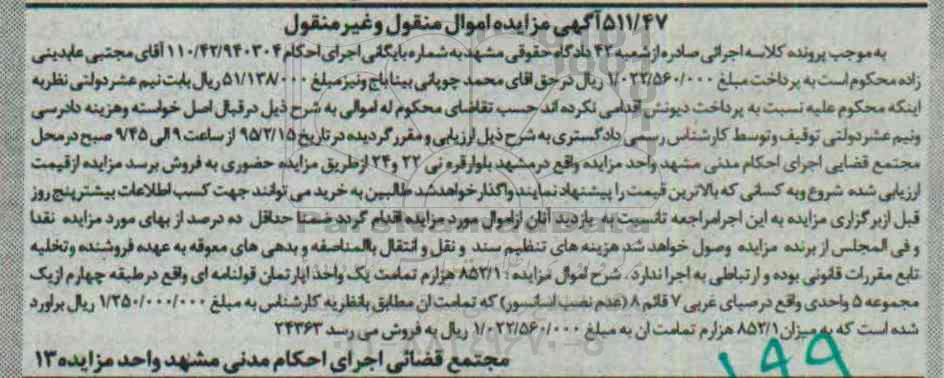 ۵۱۱/۴۷ آگهی مزایده اموال منقول و غیر منقول
به موجب پرونده کلاسه اجرائی صادره از شعبه ۴۲ دادگاه حقوقی مشهد به شماره بایگانی اجرای احکام ۱۱۰/۴۲/۹۴۰۳۰۴ آقای مجتبی عابدینی
زاده محکوم است به پرداخت مبلغ ۱/۰۲۲/۵۶۰/۰۰۰ ریال در حق آقای محمد چوپانی بیناباج و نیز مبلغ ۵۱/۱۳۸/۰۰۰ ریال بابت نیم عشر دولتی نظر به
اینکه محکوم علیه نسبت به پرداخت دیونش اقدامی نکرده اند حسب تقاضای محکوم له اموالی به شرح ذیل در قبال اصل خواسته و هزینه دادرسی
ونیم عشر دولتی توقیف و توسط کارشناس رسمی دادگستری به شرح ذیل ارزیابی و مقرر گردیده در تاریخ ۹۵/۲/۱۵ از ساعت ۹ الی ۹/۴۵ صبح در محل
مجتمع قضایی اجرای احکام مدنی مشهد واحد مزایده واقع در مشهد بلوار قره نی ۲۲ و ۲۴ از طریق مزایده حضوری به فروش برسد مزایده از قیمت
ارزیابی شده شروع و به کسانی که بالاترین قیمت را پیشنهاد نمایند واگذار خواهد شد طالبین به خرید می توانند جهت کسب اطلاعات بیشتر پنج روز
قبل از برگزاری مزایده به این اجرا مراجعه تا نسبت به بازدید آنان از اموال مورد مزایده اقدام گردد ضمنا حداقل ده درصد از بهای مورد مزایده نقدا
و فی المجلس از برنده مزایده وصول خواهد شد هزینه های تنظیم سند و نقل و انتقال بالمناصفه و بدهی های معوقه به عهده فروشنده و تخلیه
تابع مقررات قانونی بوده و ارتباطی به اجرا ندارد. شرح اموال مزایده : ۸۵۲/۱ هزارم تمامت یک واحد اپارتمان قولنامه ای واقع در طبقه چهارم از یک
مجموعه ۵ واحدی واقع در صبای غربی ۷ قائم ۸ (عدم نصب اسانسور) که تمامت ان مطابق با نظریه کارشناس به مبلغ ۱/۲۵۰/۰۰۰/۰۰۰ ریال براورد
شده است که به میزان ۸۵۲/۱ هزارم تمامت ان به مبلغ ۱/۰۲۲/۵۶۰/۰۰۰ ریال به فروش می رسد ۲۴۳۶۳
مجتمع قضائی اجرای احکام مدنی مشهد واحد مزایده ۱۳
۱۹۹
ParsNamadData